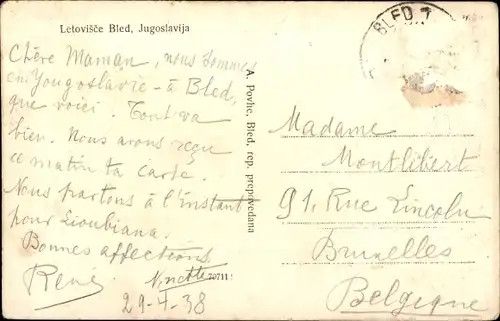 Letovišče Bled, Jugoslavija
BLED 1
Chère Maman, nous sommes
en Yougoslavie - à Bled,
que voici. Tout va
bien. Nous avons reçu
ce matin ta carte.
Nous partons à l'instant
pour Lioubiana.
Bonnes affections
René Ninette
29-4-38
A. Povhe, Bled, rep. prepovedana
70711
Madame
Montlibert
91, Rue Lincoln
Bruxelles
Belgique